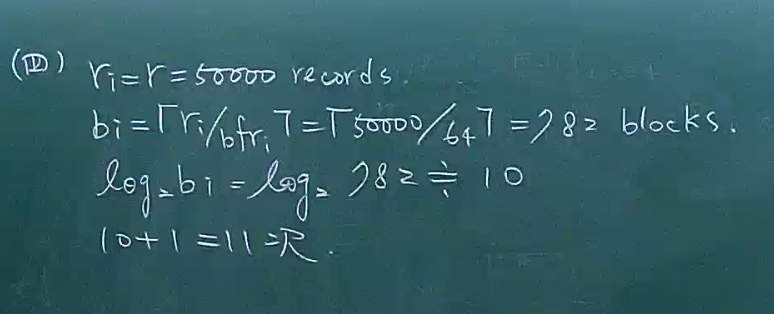 (四) ri=r=50000 records.
bi=⌈ri/bfri⌉=⌈50000/64⌉=782 blocks.
log₂bi=log₂782≒10
10+1=11次.